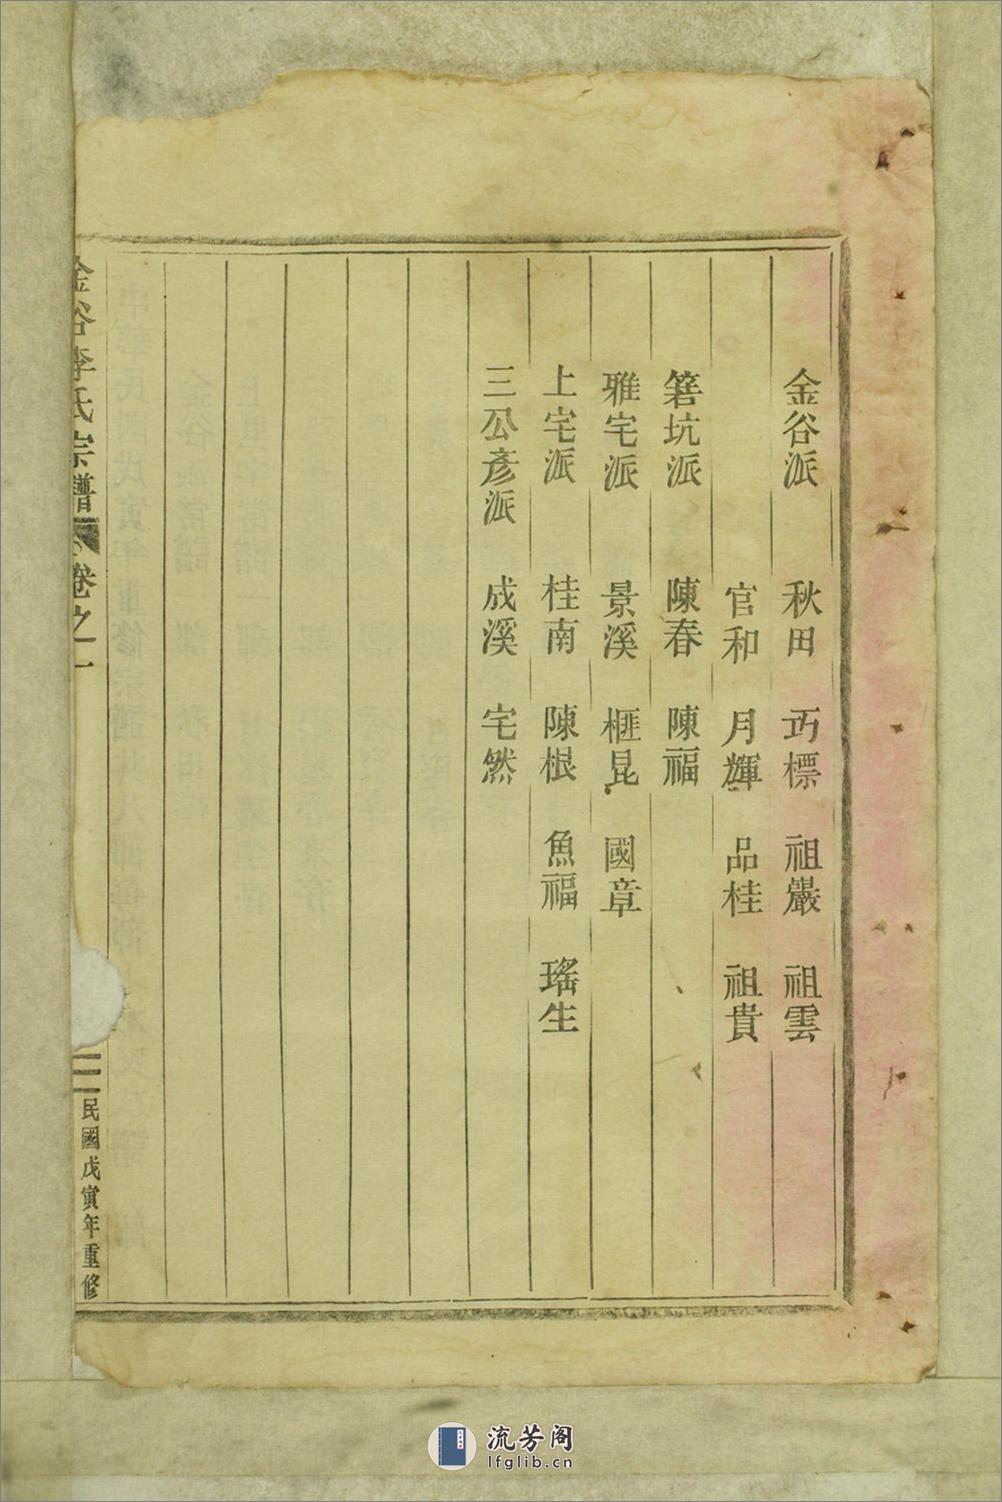 金谷派 秋田 巧標 祖巖 祖雲
官和 月輝 品桂 祖貴
箬坑派 陳春 陳福
雅宅派 景溪 榧昆 國章
上宅派 桂南 陳根 魚福 瑤生
三公彥派 成溪 宅然
金谷李氏宗譜 卷之一 三 民國戊寅年重修
流芳阁
lfglib.cn